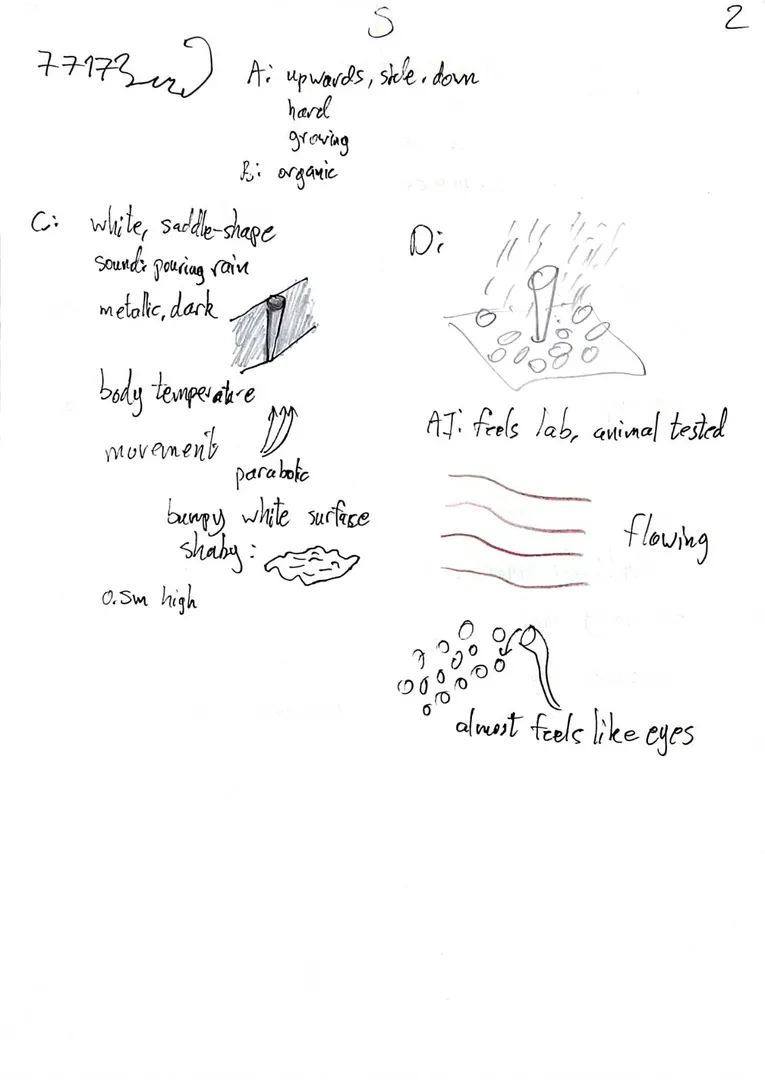 S
2
77173
A: upwards, side, down
hard
growing
B: organic
C: white, saddle-shape
sound: pouring rain
metallic, dark
body temperature
movement
parabolic
bumpy white surface
shaby:
0.5m high
D:
AI: feels lab, animal tested
flowing
almost feels like eyes